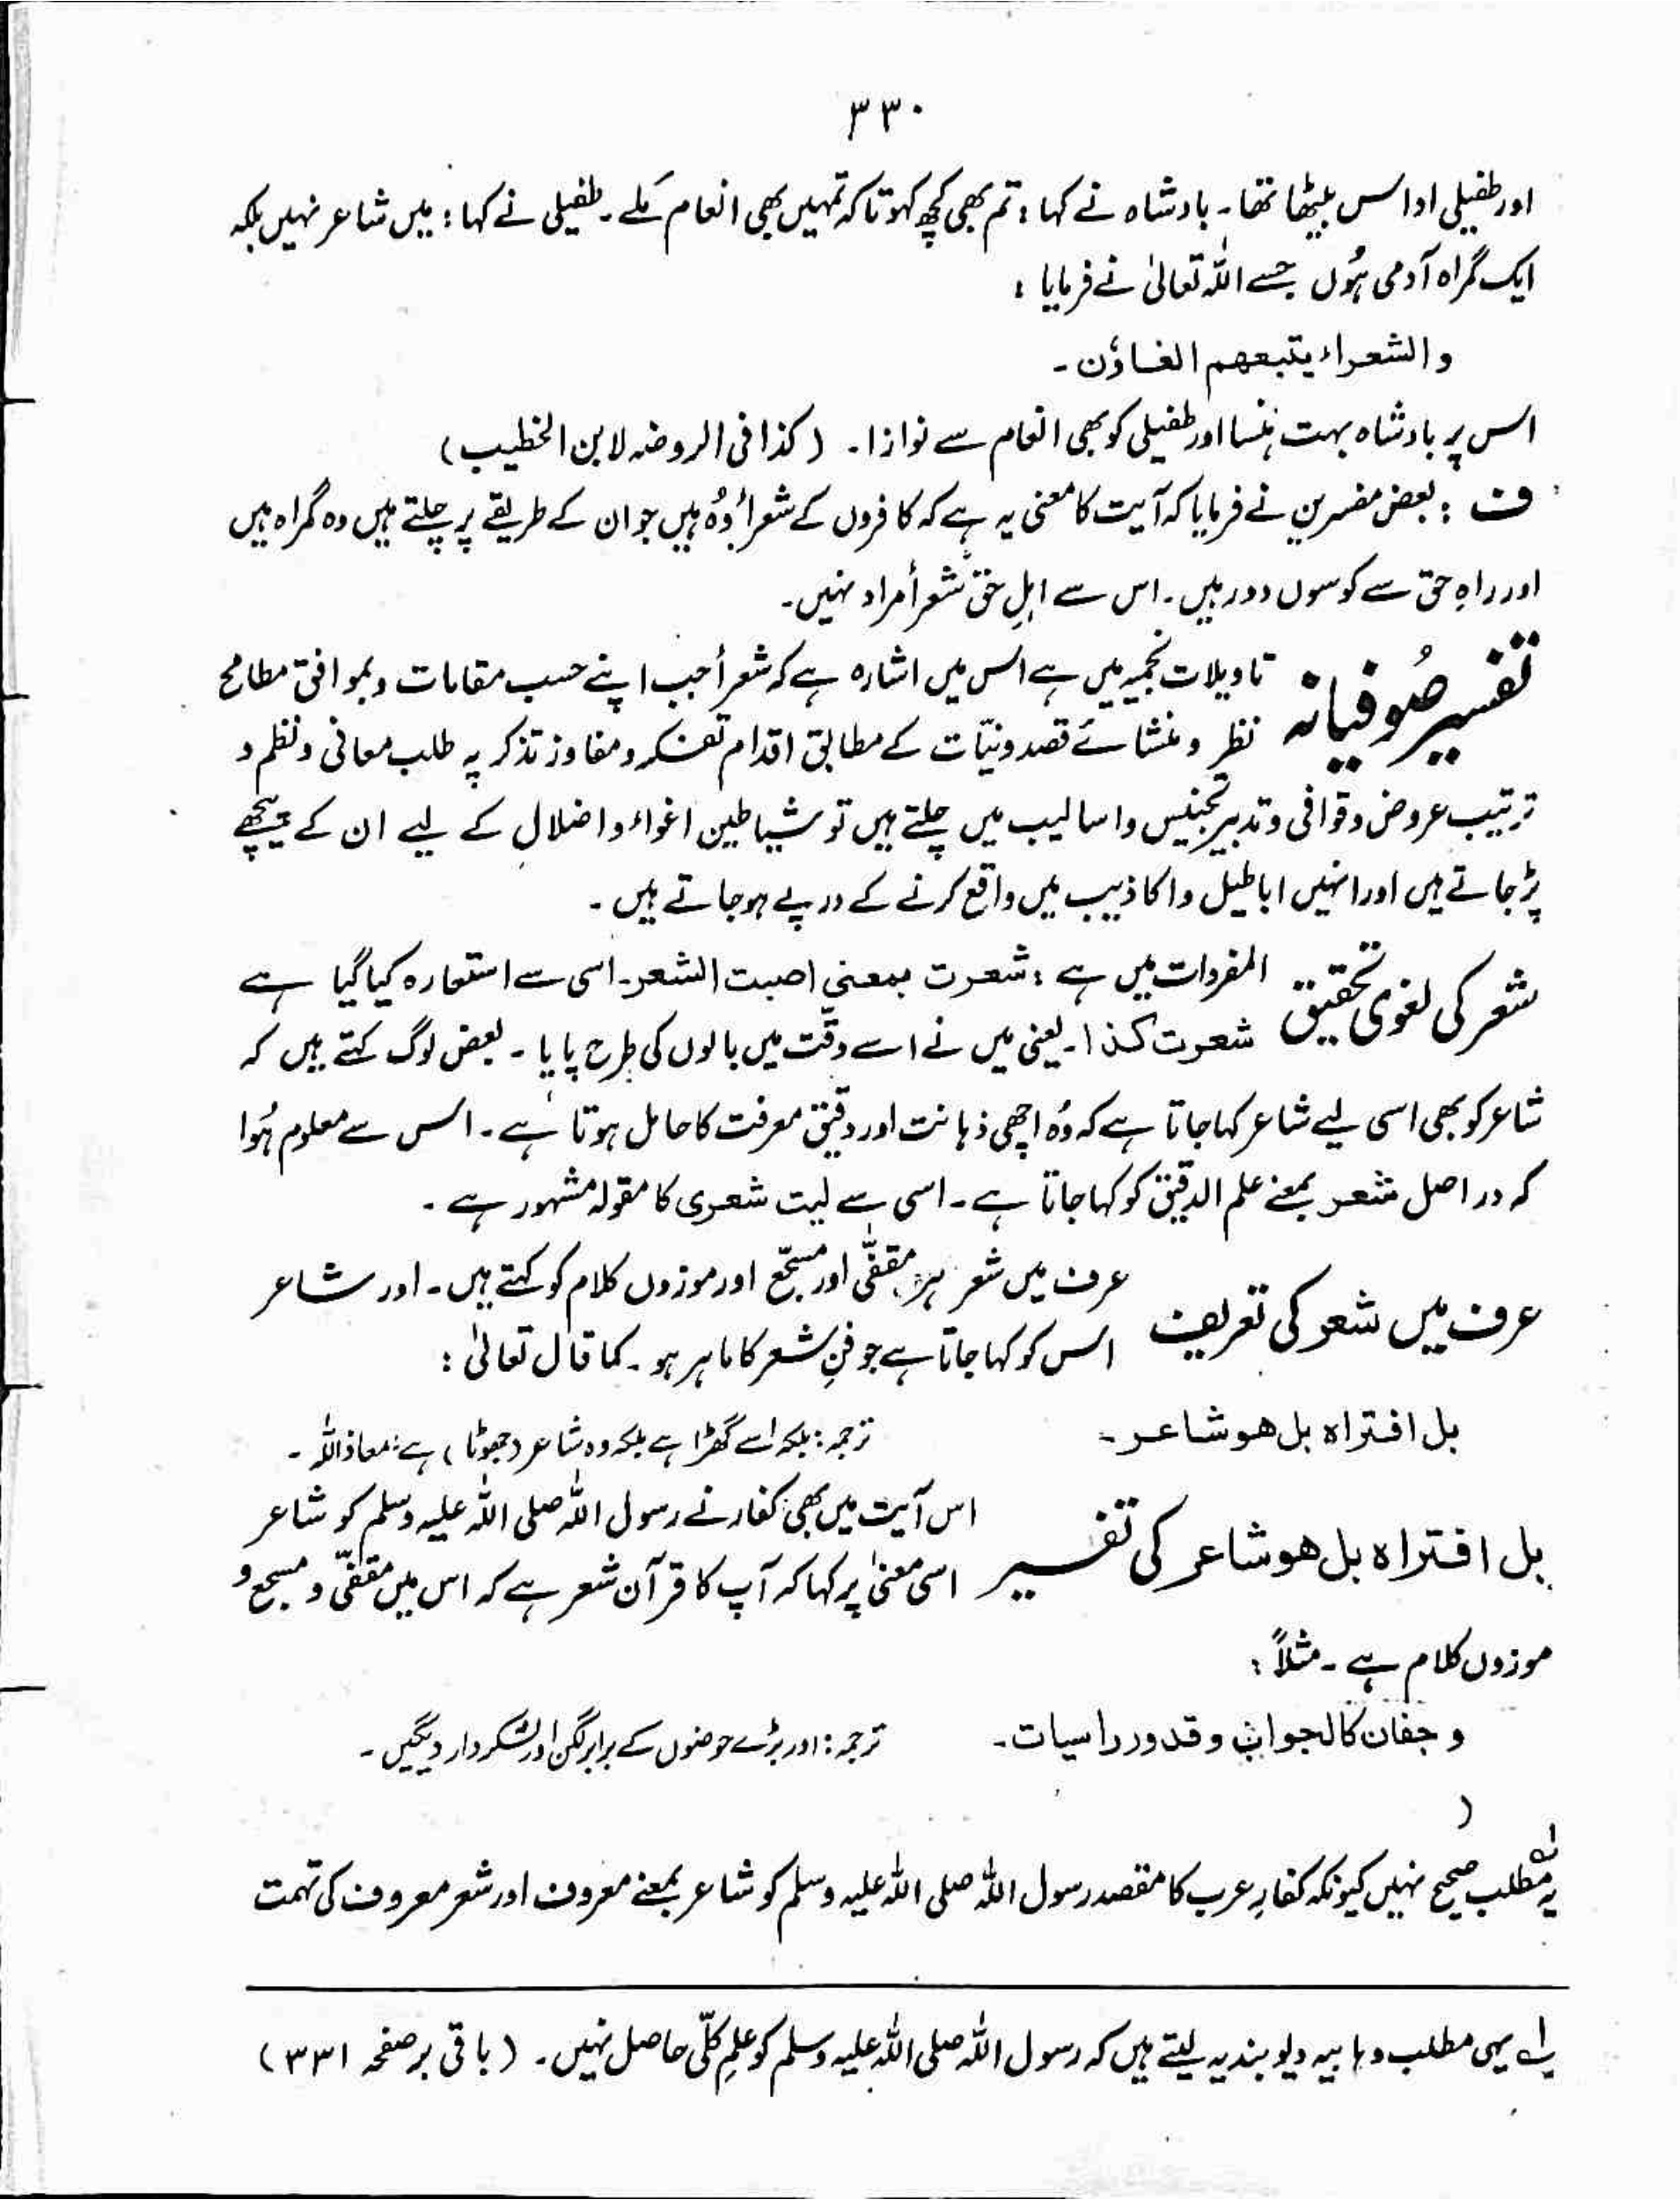 ۳۳۰
اور طفیلی اداس بیٹھا تھا۔ بادشاہ نے کہا : تم بھی کچھ کہو تاکہ تمہیں بھی انعام ملے۔ طفیلی نے کہا : میں شاعر نہیں بلکہ
ایک گمراہ آدمی ہُوں جسے اللہ تعالیٰ نے فرمایا :
والشعراء یتبعھم الغاوٗن۔
اس پر بادشاہ بہت ہنسا اور طفیلی کو بھی انعام سے نوازا۔ (کذا فی الروضہ لابن الخطیب)
ف : بعض مفسرین نے فرمایا کہ آیت کا معنی یہ ہے کہ کافروں کے شعرأ وُہ ہیں جو ان کے طریقے پر چلتے ہیں وہ گمراہ ہیں
اور راہِ حق سے کوسوں دور ہیں۔ اس سے اہلِ حق شعرأ مراد نہیں۔
تفسیر صُوفیانہ تاویلات نجمیہ میں ہے اس میں اشارہ ہے کہ شعرأ جب اپنے حسب مقامات و بموافق مطامح
نظر و منشائے قصد و نیّات کے مطابق اقدام تفکر و مفاوز تذکر پہ طلب معانی و نظم و
ترتیب عروض و قوافی و تدبیر تجنیس و اسالیب میں چلتے ہیں تو شیاطین اغواء و اضلال کے لیے ان کے پیچھے
پڑ جاتے ہیں اور انہیں اباطیل و اکاذیب میں واقع کرنے کے درپے ہو جاتے ہیں۔
شعر کی لغوی تحقیق المفردات میں ہے : شعرت بمعنی اصبت الشعر۔ اسی سے استعارہ کیا گیا ہے
شعرت کذا۔ یعنی میں نے اسے دقّت میں بالوں کی طرح پایا۔ بعض لوگ کہتے ہیں کہ
شاعر کو بھی اسی لیے شاعر کہا جاتا ہے کہ وُہ اچھی ذہانت اور دقیق معرفت کا حامل ہوتا ہے۔ اس سے معلوم ہُوا
کہ در اصل شعر بمعنے علم الدقیق کو کہا جاتا ہے۔ اسی سے لیت شعری کا مقولہ مشہور ہے۔
عرف میں شعر کی تعریف عرف میں شعر ہر مقفّٰی اور مسجّع اور موزوں کلام کو کہتے ہیں۔ اور شاعر
اس کو کہا جاتا ہے جو فنِ شعر کا ماہر ہو۔ کما قال تعالیٰ :
بل افتراہ بل ھو شاعر۔ ترجمہ : بلکہ اسے گھڑا ہے بلکہ وہ شاعر (جھوٹا) ہے : معاذ اللہ۔
بل افتراہ بل ھو شاعر کی تفسیر اس آیت میں بھی کفار نے رسول اللہ صلی اللہ علیہ وسلم کو شاعر
اسی معنٰی پر کہا کہ آپ کا قرآن شعر ہے کہ اس میں مقفّٰی و مسجع و
موزوں کلام ہے۔ مثلاً :
و جفان کالجواب و قدور راسیات۔ ترجمہ : اور بڑے حوضوں کے برابر لگن اور لنگردار دیگیں۔
(
یہ مطلب۱؎ صحیح نہیں کیونکہ کفارِ عرب کا مقصد رسول اللہ صلی اللہ علیہ وسلم کو شاعر بمعنے معروف اور شعر معروف کی تہمت
۱؎ یہی مطلب وہابیہ دیوبندیہ لیتے ہیں کہ رسول اللہ صلی اللہ علیہ وسلم کو علمِ کلّی حاصل نہیں۔ (باقی بر صفحہ ۳۳۱)